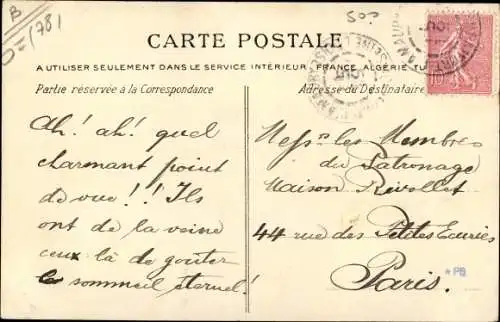 B
D=1781
50?
CARTE POSTALE
A UTILISER SEULEMENT DANS LE SERVICE INTÉRIEUR, FRANCE, ALGÉRIE
Partie réservée à la Correspondance
Adresse du Destinataire
Ah! ah! quel
charmant point
de vue!! Ils
ont de la veine
ceux là de goûter
le sommeil éternel!
Mess rs les Membres
du Patronage
Maison Rivollet
44 rue des Petites Ecuries
Paris.
*PB